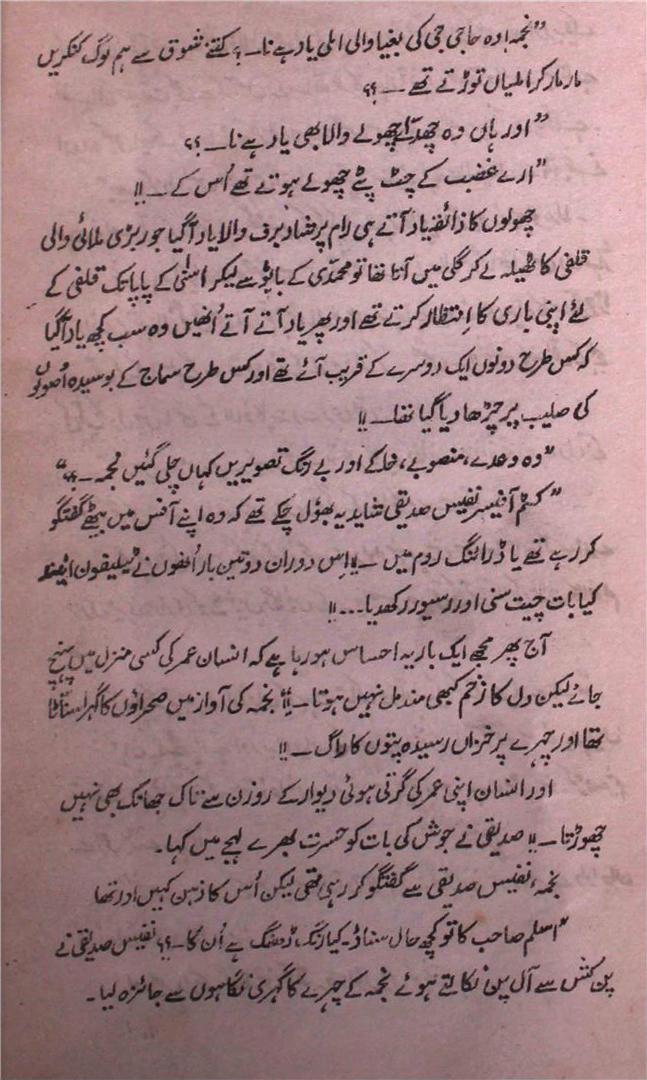 "نجمہ! وہ حاجی جی کی بغیا والی املی یاد ہے نا۔؟ کتنے شوق سے ہم لوگ کنکریں
مار مار کر املیاں توڑتے تھے ــ ؟؟
"اور ہاں وہ چھولے والا بھی یاد ہے نا ــ ؟؟
"ارے غضب کے چٹ پٹے چھولے ہوتے تھے اُس کے ــ !!
چھولوں کا ذائقہ یاد آتے ہی رام پرشاد برف والا یاد آگیا جو ربڑی ملائی والی
قلفی کا ٹھیلہ لے کر گلی میں آتا تھا تو محمدی کے باپو سے لیکر اسنیٰ کے پاپا تک قلفی کے
لئے اپنی باری کا اِنتظار کرتے تھے اور پھر یاد آتے آتے اُنھیں وہ سب کچھ یاد آگیا
کہ کس طرح دونوں ایک دوسرے کے قریب آئے تھے اور کس طرح سماج کے بوسیدہ اُصولوں
کی صلیب پر چڑھا دیا گیا تھا ــ !!
"وہ وعدے، منصوبے، خاکے اور بے رنگ تصویریں کہاں چلی گئیں نجمہ ــ "
"کسٹم آفیسر نفیس صدیقی شاید یہ بھول چکے تھے کہ وہ اپنے آفس میں بیٹھے گفتگو
کر رہے تھے یا ڈرائنگ روم میں ــ !! اِس دوران دو تین بار اُنھوں نے ٹیلیفون اٹینڈ
کیا بات چیت سنی اور رسیور رکھدیا ... !!
آج پھر مجھے ایک بار یہ احساس ہو رہا ہے کہ انسان عمر کی کسی منزل میں پہنچ
جائے لیکن دل کا زخم کبھی مندمل نہیں ہوتا ــ !! نجمہ کی آواز میں صحراؤں کا گہرا سناٹا
تھا اور چہرے پر خزاں رسیدہ پتوں کا راگ ــ !!
اور انسان اپنی عمر کی گرتی ہوئی دیوار کے روزن سے تاک جھانک بھی نہیں
چھوڑتا ــ !! صدیقی نے جوش کی بات کو حسرت بھرے لہجے میں کہا۔
نجمہ، نفیس صدیقی سے گفتگو کر رہی تھی لیکن اُس کا ذہن کہیں اور تھا
"اسلم صاحب کا تو کچھ حال سناؤ۔ کیا رنگ ڈھنگ ہے اُن کا ــ ؟؟ نفیس صدیقی نے
پن کشن سے آل پن نکالتے ہوئے نجمہ کے چہرے کا گہری نگاہوں سے جائزہ لیا۔